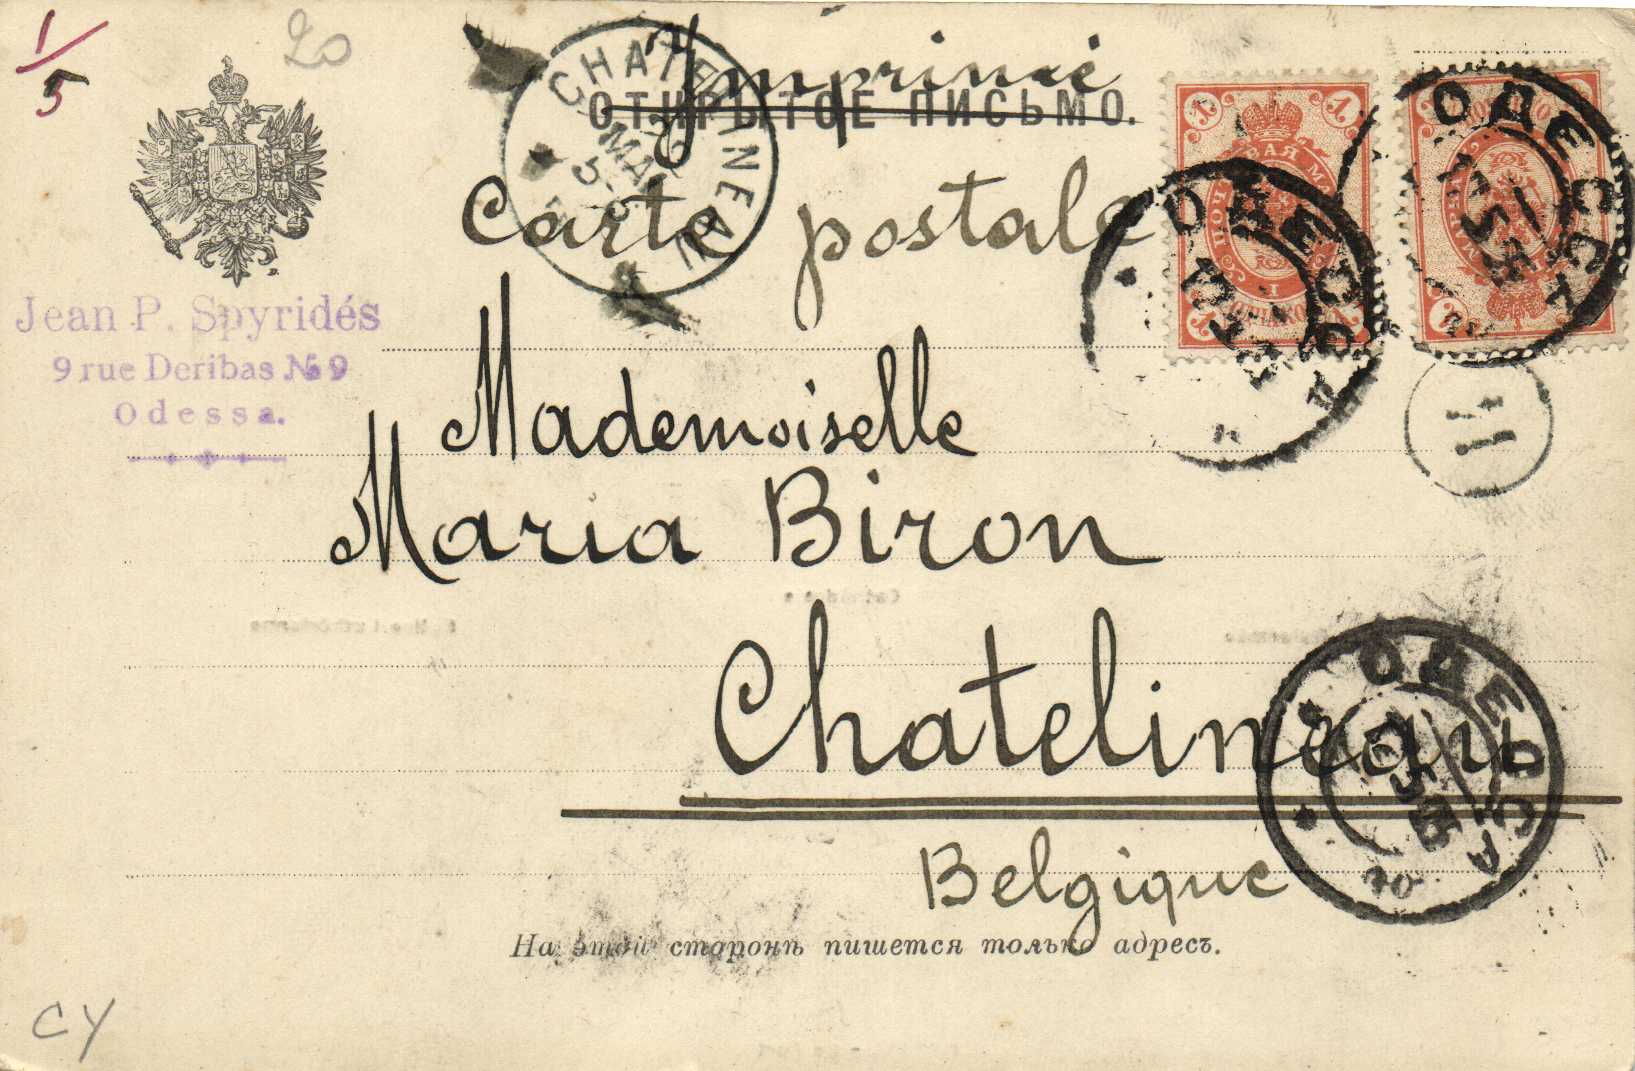 1/5
20
Imprimé
ОТКРЫТОЕ ПИСЬМО.
CHATELINEAU
MAI
5
Carte postale
ОДЕССА
ОДЕССА
Jean P. Spyridés
9 rue Deribas № 9
Odessa.
11
Mademoiselle
Maria Biron
Chatelineau
ОДЕССА
Belgique
На этой сторонѣ пишется только адресъ.
CY